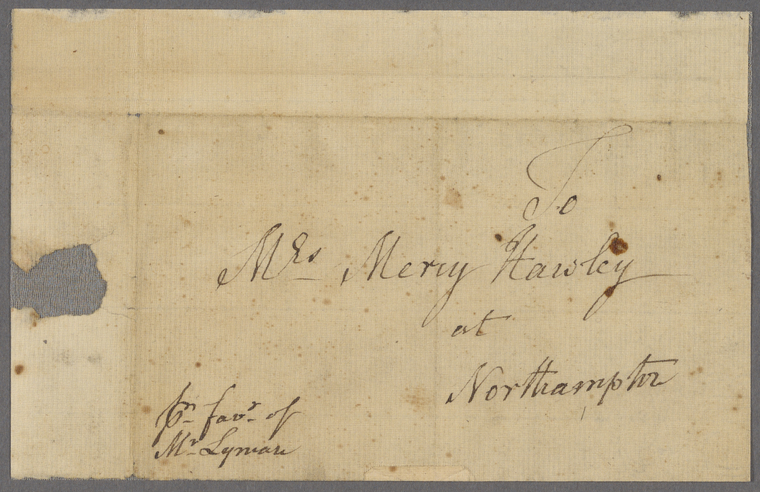 To
Mrs Mercy Hawley
at
Northampton
pr favr of
Mr Lyman